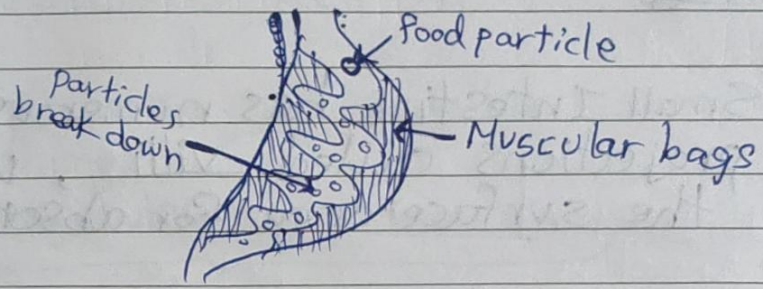 food particle
Particles
break down
Muscular bags